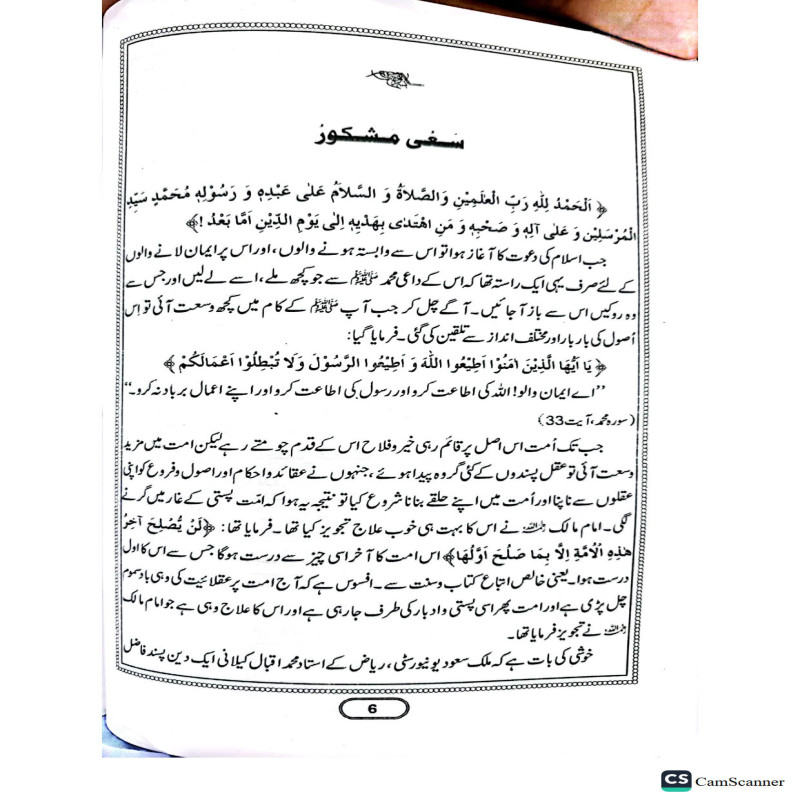 سَعْیِ مشکورْ
﴿ اَلْحَمْدُ لِلّٰهِ رَبِّ الْعٰلَمِیْنِ وَالصَّلاَةُ وَ السَّلاَمُ عَلٰی عَبْدِهٖ وَ رَسُوْلِهٖ مُحَمَّدٍ سَیِّدِ
الْمُرْسَلِیْنَ وَ عَلٰی آلِهٖ وَ صَحْبِهٖ وَ مَنِ اهْتَدٰی بِهَدْیِهٖ اِلٰی یَوْمِ الدِّیْنِ اَمَّا بَعْدُ !﴾
جب اسلام کی دعوت کا آغاز ہوا تو اس سے وابستہ ہونے والوں ، اور اس پر ایمان لانے والوں
کے لئے صرف یہی ایک راستہ تھا کہ اس کے داعی محمد ﷺ سے جو کچھ ملے ، اسے لے لیں اور جس سے
وہ روکیں اس سے باز آ جائیں ۔ آگے چل کر جب آپ ﷺ کے کام میں کچھ وسعت آئی تو اِس
اُصول کی بار بار اور مختلف انداز سے تلقین کی گئی ۔ فرمایا گیا :
﴿ یَا اَیُّهَا الَّذِیْنَ اٰمَنُوْا اَطِیْعُوا اللّٰهَ وَ اَطِیْعُوا الرَّسُوْلَ وَلاَ تُبْطِلُوْا اَعْمَالَکُمْ ﴾
’’اے ایمان والو! اللہ کی اطاعت کرو اور رسول کی اطاعت کرو اور اپنے اعمال برباد نہ کرو۔‘‘
(سورہ محمد، آیت 33)
جب تک اُمت اس اصل پر قائم رہی خیر و فلاح اس کے قدم چومتے رہے لیکن امت میں مزید
وسعت آئی تو عقل پسندوں کے کئی گروہ پیدا ہوئے ، جنہوں نے عقائد و احکام اور اصول و فروع کو اپنی
عقلوں سے ناپنا اور اُمت میں اپنے حلقے بنانا شروع کیا تو نتیجہ یہ ہوا کہ امّت پستی کے غار میں گرنے
لگی ۔ امام مالک رحمہ اللہ نے اس کا بہت ہی خوب علاج تجویز کیا تھا ۔ فرمایا تھا : ﴿لَنْ یُّصْلِحَ آخِرُ
هٰذِهِ الْاُمَّةِ اِلَّا بِمَا صَلُحَ اَوَّلُهَا﴾ اس امت کا آخر اسی چیز سے درست ہوگا جس سے اس کا اول
درست ہوا۔ یعنی خالص اتباعِ کتاب و سنت سے ۔ افسوس ہے کہ آج امت پر عقلائیت کی وہی بادِ سموم
چل پڑی ہے اور امت پھر اسی پستی و ادبار کی طرف جا رہی ہے اور اس کا علاج وہی ہے جو امام مالک
رحمہ اللہ نے تجویز فرمایا تھا۔
خوشی کی بات ہے کہ ملک سعود یونیورسٹی ، ریاض کے استاد محمد اقبال کیلانی ایک دین پسند فاضل
6
CS CamScanner